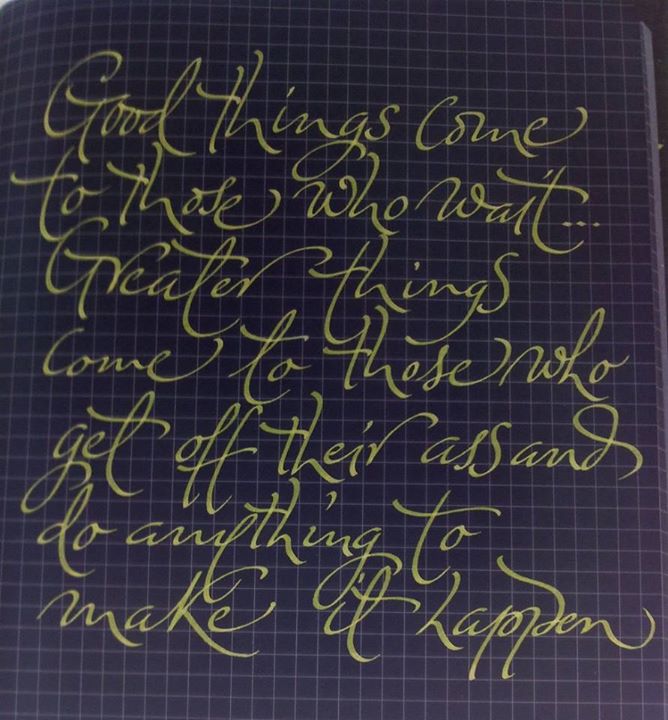 Good things come
to those who wait...
Greater things
come to those who
get off their ass and
do anything to
make it happen